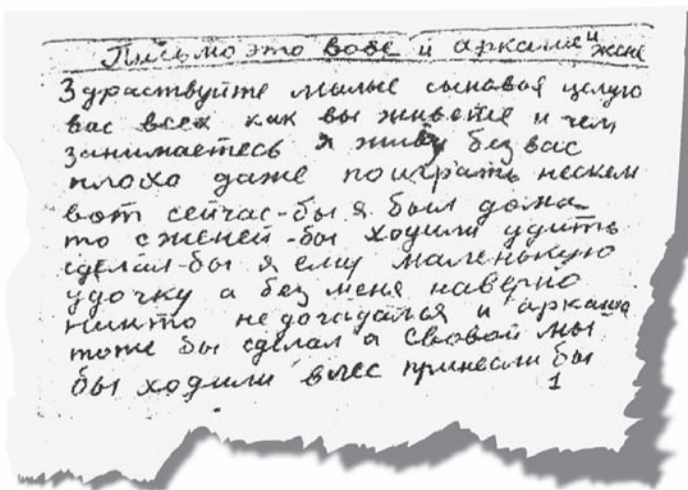 Письмо это вове и аркаше и жене
Здраствуйте милые сыновья целую
вас всех как вы живёте и чем
занимаетесь я живу без вас
плохо даже поиграть нескем
вот сейчас-бы я был дома
то с женей-бы ходили удить
сделал-бы я ему маленькую
удочку а без меня наверно
никто не догадался и аркаша
тоже бы сделал а свовой мы
бы ходили влес принесли бы
1